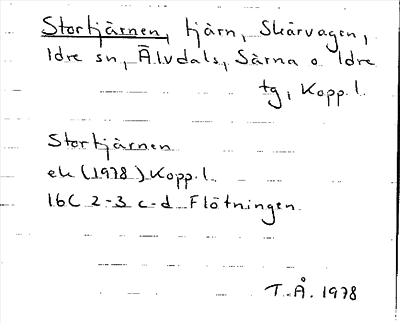 Stortjärnen, tjärn, Skärvagen,
Idre sn, Älvdals, Särna o Idre
tg, Kopp. l.
Stortjärnen
ek (1978) Kopp. l.
16C 2-3 c-d Flötningen
T. Å. 1978